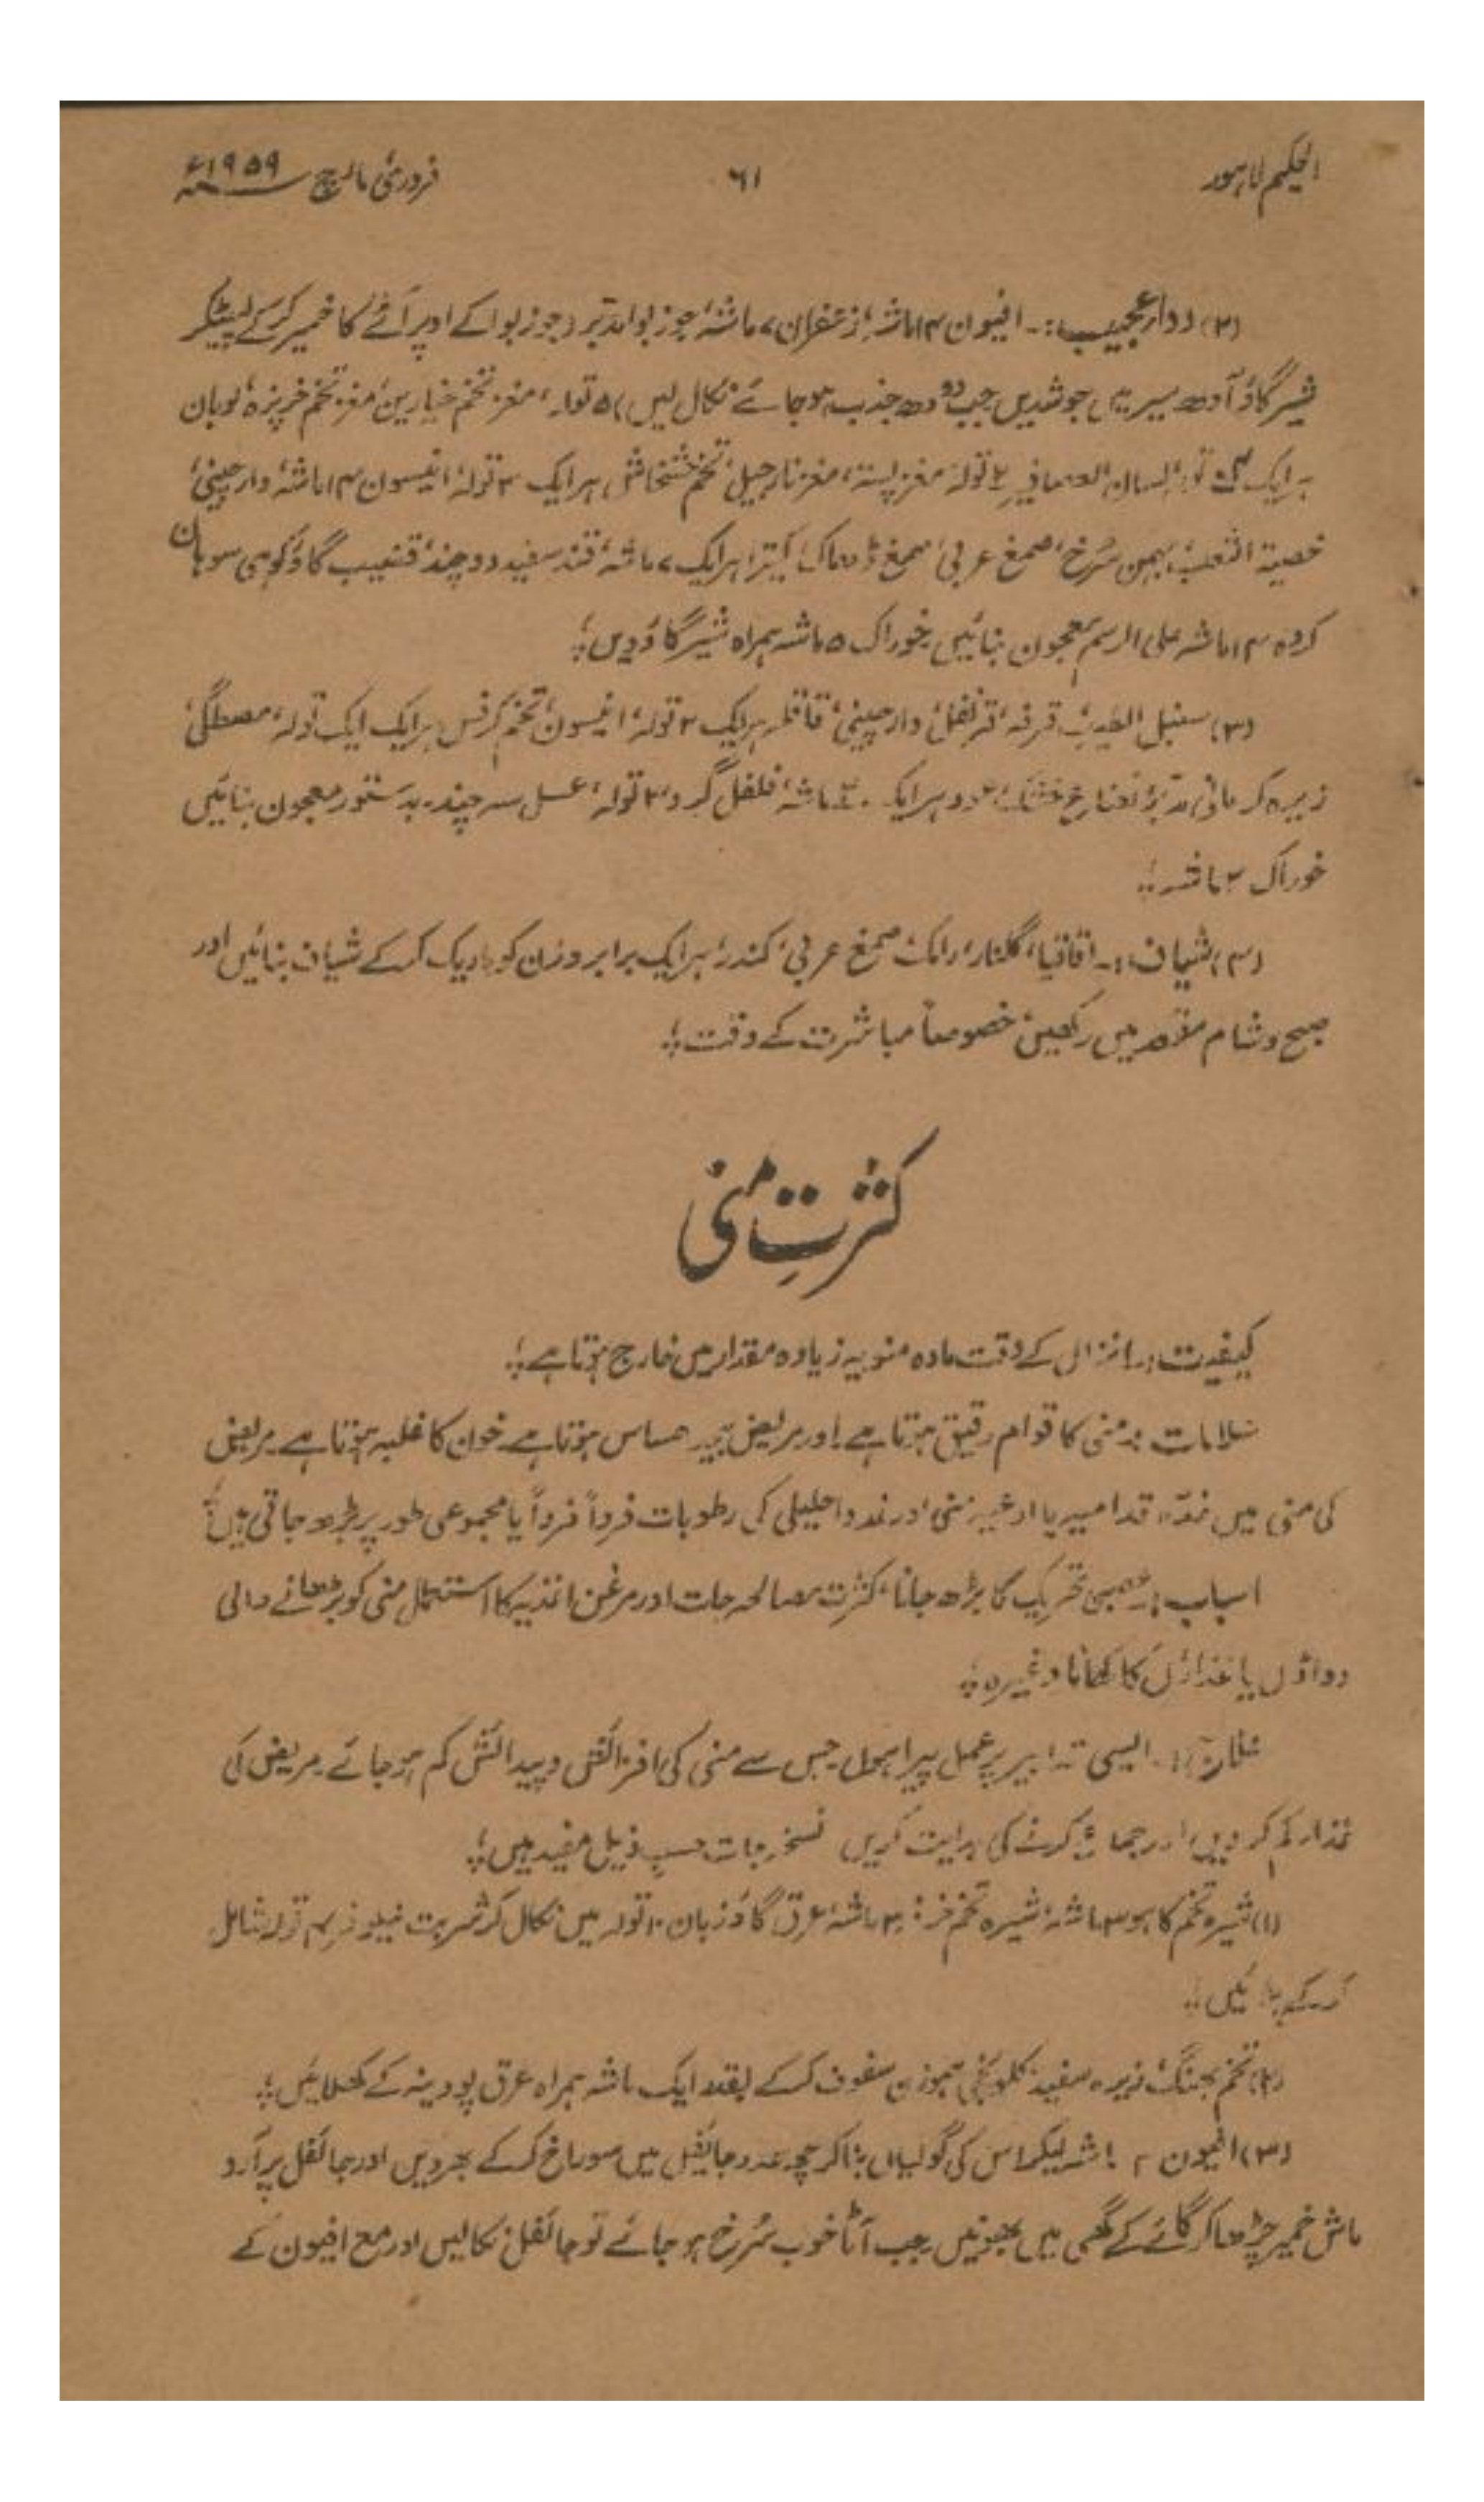 الحکیم لاہور
۶۱
فروری مارچ ۱۹۵۹ء
(۲) دواء عجیب:۔ افیون ۱۴ ماشہ، زعفران ۷ ماشہ، جوزبوا مدبر (جوزبوا کے اوپر آٹے کا خمیر کرکے لپیٹکر
شیرگاؤ آدھ سیر میں جوشدیں جب دودھ جذب ہوجائے نکال لیں) ۵ تولہ، مغز تخم خیارین، مغز تخم خرپزہ، لوبان
ہر ایک تولہ، لسان العصافیر ۲ تولہ، مغز پستہ، مغز نارجیل، تخم خشخاش ہر ایک ۳ تولہ، انیسون ۱۴ ماشہ، دارچینی،
خصیۃ الثعلب، بہمن سُرخ، صمغ عربی، صمغ ڈھاک، کتیرا ہر ایک ۷ ماشہ، قند سفید دو چند، قضیب گاؤ کوہی سوہان
کردہ ۱۴ ماشہ علی الرسم معجون بنائیں خوراک ۵ ماشہ ہمراہ شیرگاؤ دیں؛
(۳) سنبل الطیب، قرفہ، قرنفل، دارچینی، قاقلہ ہر ایک ۲ تولہ، انیسون، تخم کرفس ہر ایک ایک تولہ، مصطگی،
زیرہ کرمانی مدبر، نعناع خشک، ہر ایک ماشہ، فلفل گرد ۲ تولہ، عسل سہ چند۔ بدستور معجون بنائیں
خوراک ۲ ماشہ؛
(۴) شیاف:۔ اقاقیا، گلنار، رامک، صمغ عربی، کندر، ہر ایک برابر وزن کو باریک کرکے شیاف بنائیں اور
صبح و شام مقعد میں رکھیں، خصوصاً مباشرت کے وقت؛
کثرتِ منی
کیفیت:۔ انزال کے وقت مادہ منویہ زیادہ مقدار میں خارج ہوتا ہے؛
علامات:۔ منی کا قوام رقیق ہوتا ہے اور مریض حساس ہوتا ہے خون کا غلبہ ہوتا ہے مریض
کی منی میں غدہ قدامیہ یا اوعیہ منی اور غدد احلیلی کی رطوبات فرداً فرداً یا مجموعی طور پر بڑھ جاتی ہیں؛
اسباب:۔ عصبی تحریک کا بڑھ جانا، کثرت مصالحہ جات اور مرغن اغذیہ کا استعمال منی کو بڑھانے والی
دواؤں یا غذاؤں کا کھانا وغیرہ؛
علاج:۔ ایسی تدابیر پر عمل پیرا ہوں جس سے منی کی افزائش و پیدائش کم ہوجائے۔ مریض کی
غذا کم کردیں اور جماع کرنے کی ہدایت کریں نسخہ جات حسبِ ذیل مفید ہیں؛
(۱) شیرہ تخم کاہو ۳ ماشہ، شیرہ تخم خرفہ ۳ ماشہ، عرق گاؤزبان ۱۰ تولہ میں نکال کر شربت نیلوفر ۴ تولہ شامل
کرکے پلائیں؛
(۲) تخم بھنگ، زیرہ سفید، کلونجی ہموزن سفوف کرکے بقدر ایک ماشہ ہمراہ عرق پودینہ کے کھلائیں؛
(۳) افیون ماشہ لیکر اس کی گولیاں بناکر چھ عدد جائفل میں سوراخ کرکے بھر دیں اور جائفل پر آرد
ماش خمیر چڑھا کر گائے کے گھی میں بھونیں جب آٹا خوب سُرخ ہوجائے تو جائفل نکالیں اور مع افیون کے